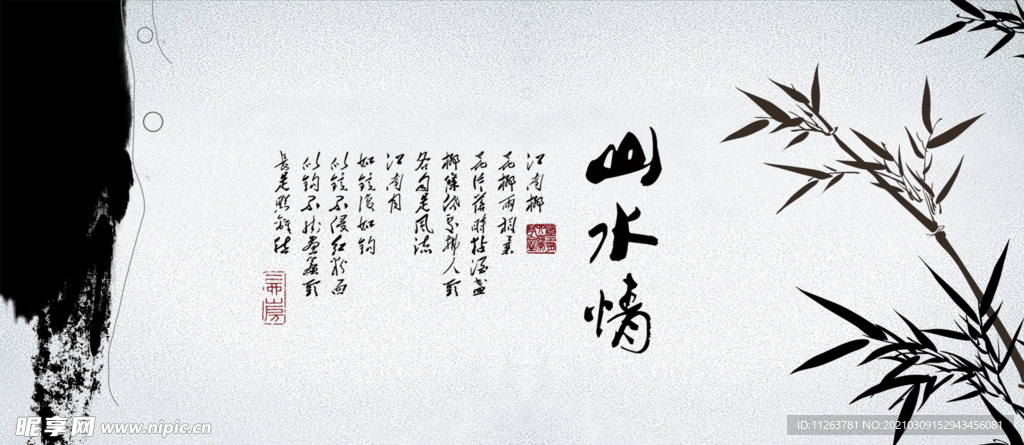 山水情
江南柳
花柳两相柔
花片落时黏酒盏
柳条低处拂人头
各自是风流
江南月
如镜复如钩
似镜不侵红粉面
似钩不挂画帘头
长是照离愁
昵享网 www.nipic.cn
ID:11263781 NO:20210309152943456081